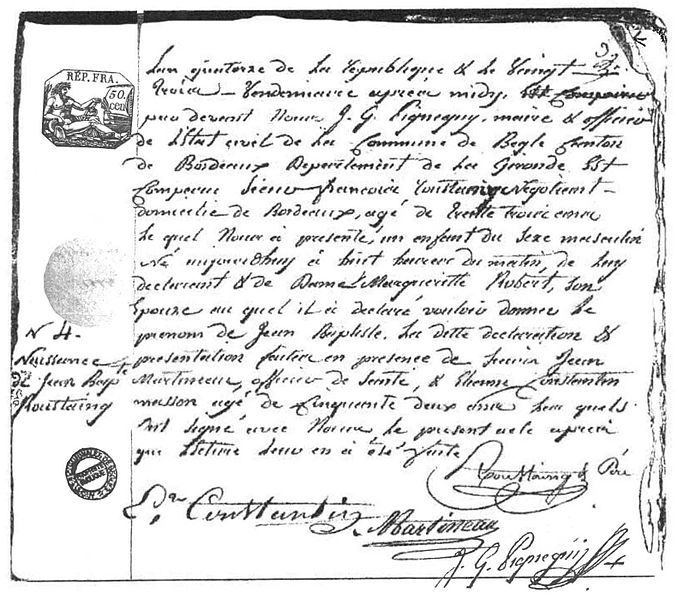 RÉP. FRA.
50.
cen
Lan quatorze de La république & Le Vingt
Trois Vendemiaire apres midy,
par devant Nous J. G. Pignegny, maire & officier
de Letat civil de La Commune de Begle Canton
de Bordeaux Departement de La Gironde Est
Comparu Sieur francois Poustaing Négotiant
domicilié de Bordeaux, agé de Trente trois ans
Le quel Nous à presenté, un enfant du Sexe masculin
Né aujourdhuy à huit heures du matin, de Luy
declarant & de Dame Margueritte Robert, Son
Epouse au quel il à declaré vouloir donner Le
prenom de Jean Baptiste. La dette declaration &
presentation faittes en presence de Sieurs Jean
Martineau, officier de Santé, & Etienne Constantin
masson agé de Cinquante deux ans Les quels
Ont Signé avec Nous Le present acte apres
que Lecture Leur en à été faite
N 4.
Naissance
de Jean Bapte
Poustaing
Poustaing Père
Constantin
Martineau
J. G. Pignegny